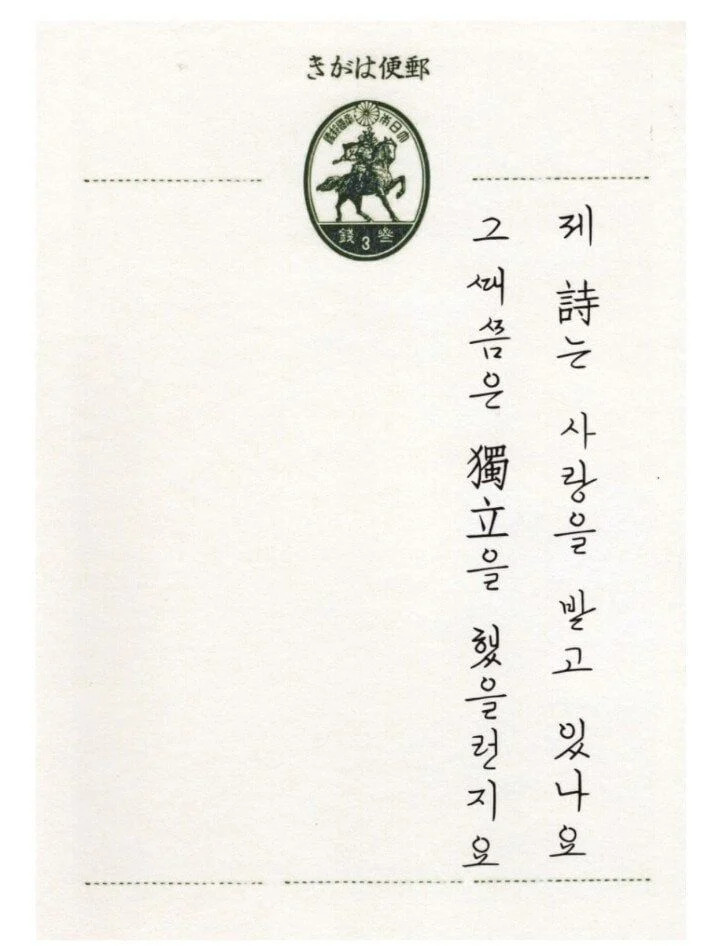 郵便はがき
大日本帝國郵便
叁3錢
제 詩는 사랑을 받고 있나요
그 ᄯᅢᄶᅳᆷ은 獨立을 했을런지요